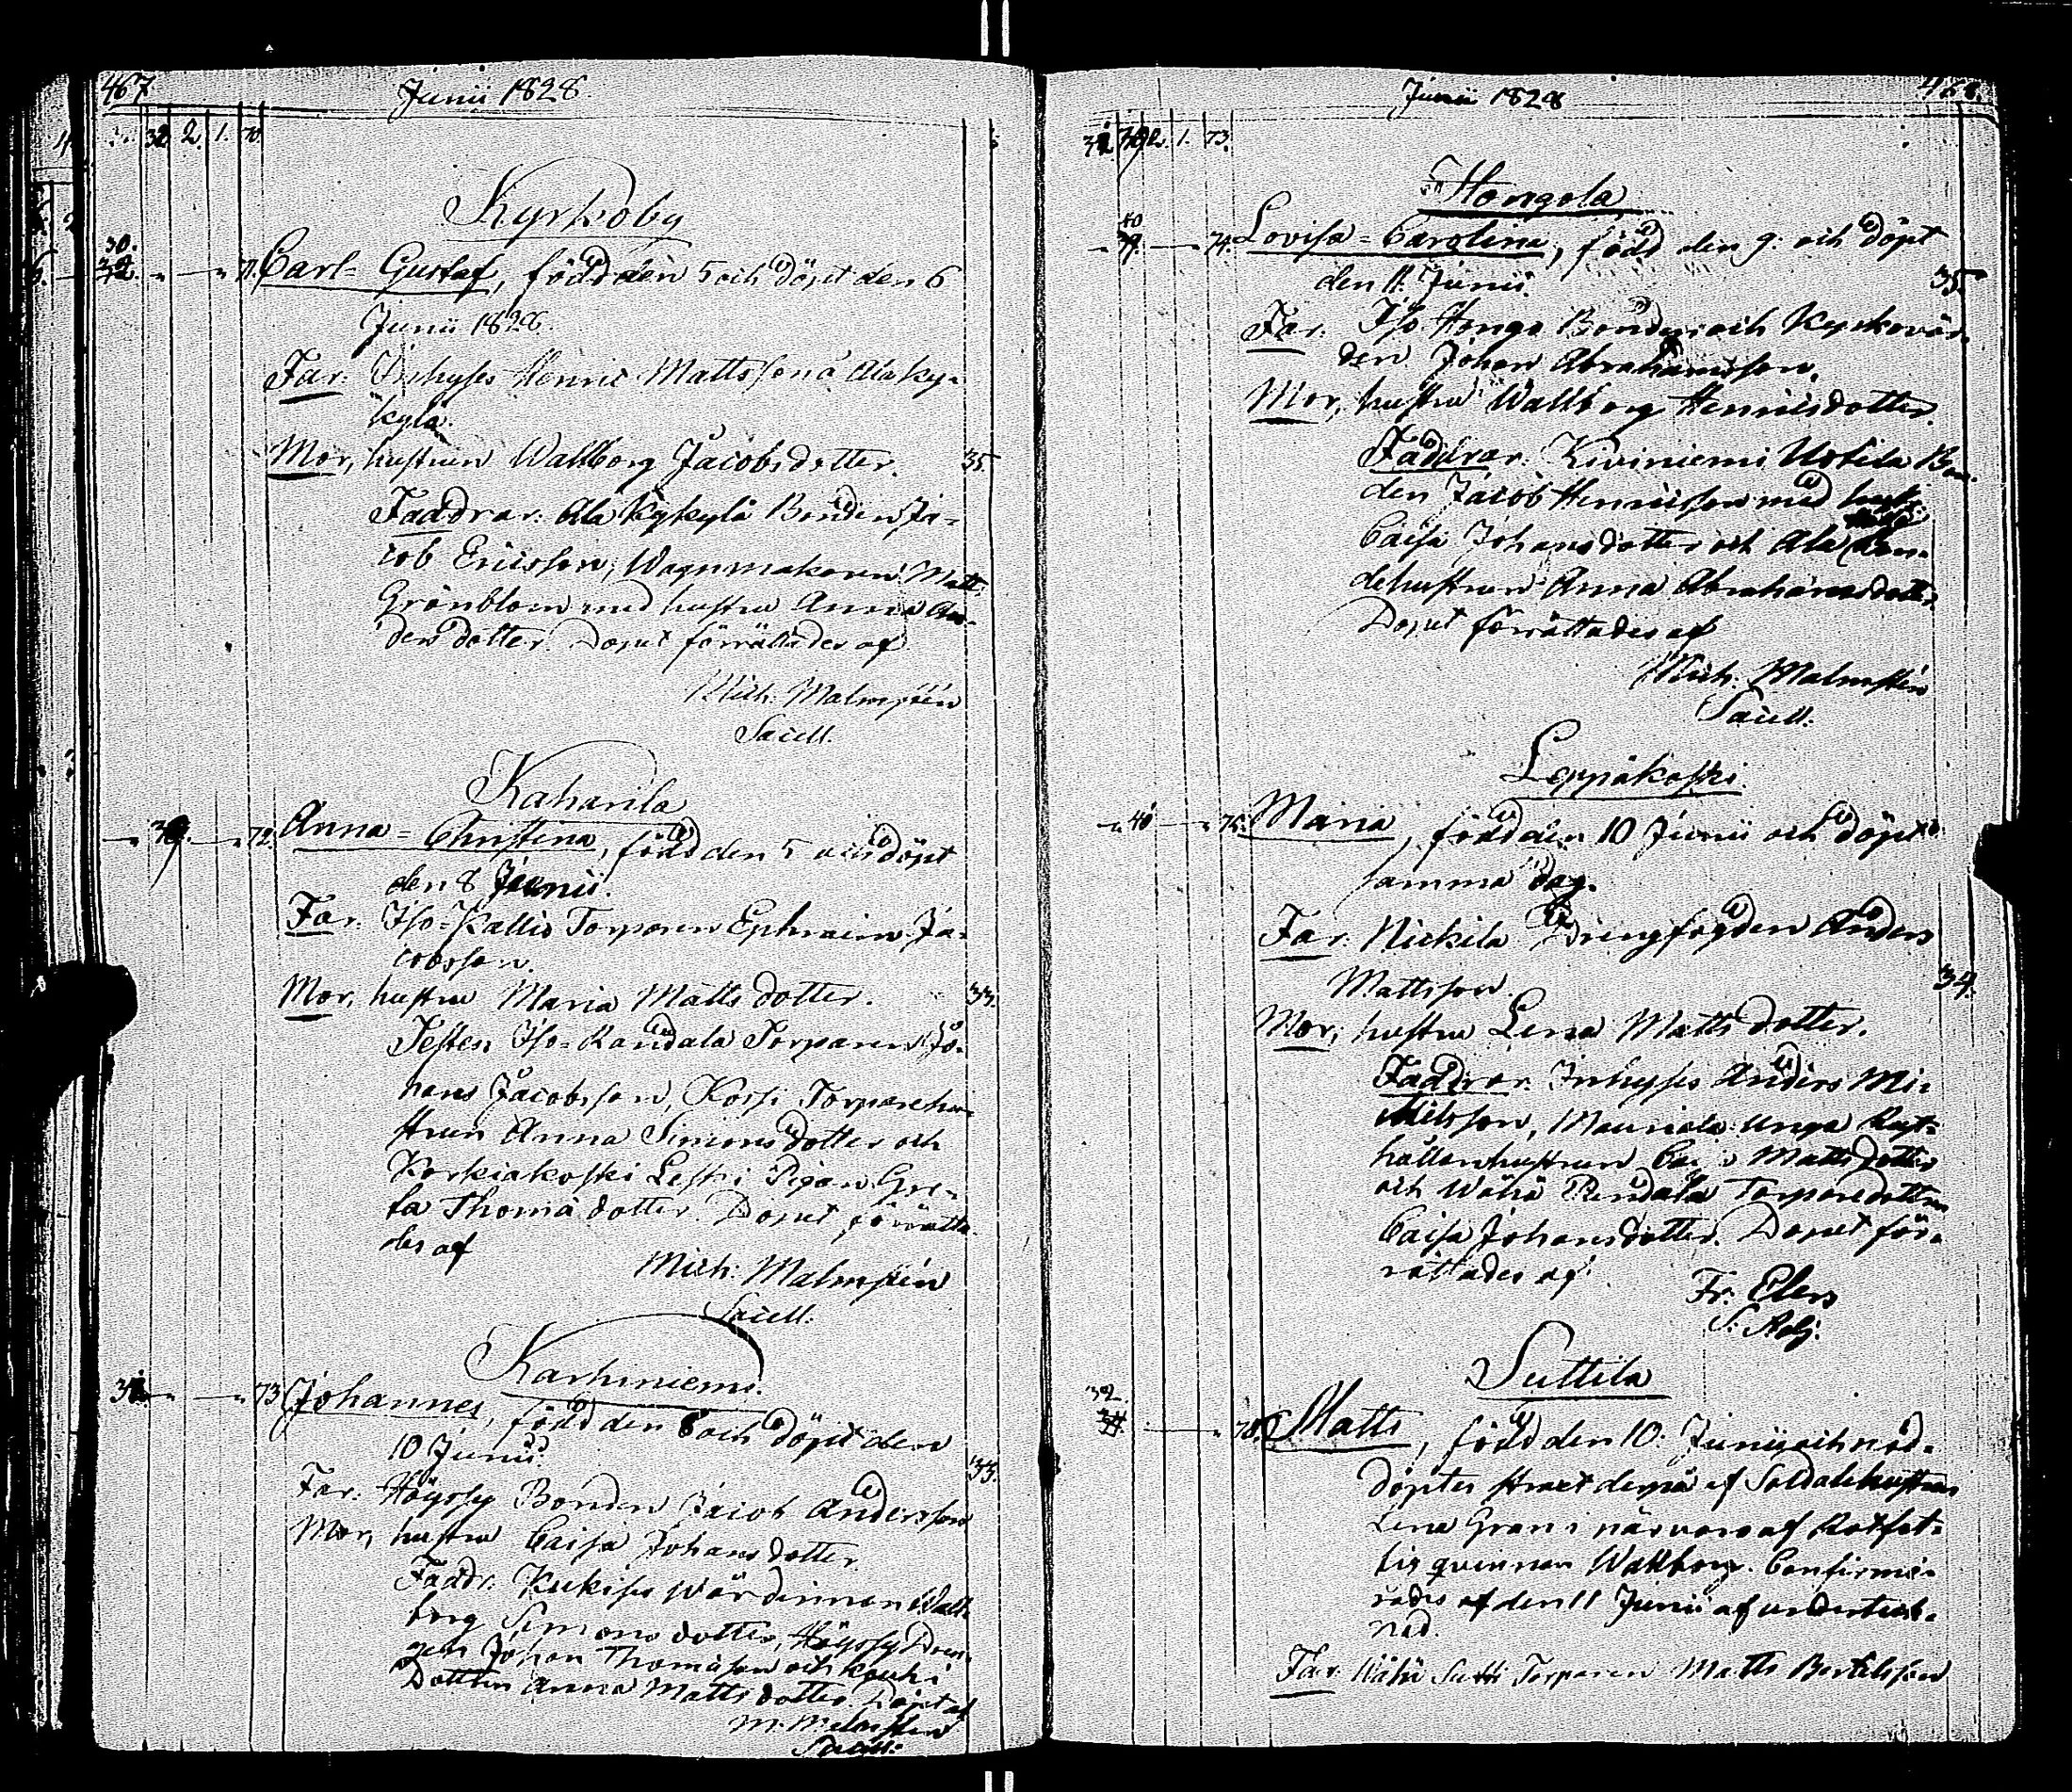 467
Junii 1828.
32 2. 1. 70.
Kyrkoby
30.
71. Carl=Gustaf, född den 5 och döpt den 6
Junii 1828.
Far: Inhyses Henric Mattsson å Ala Ky=
kylä.
Mor, hustrun Wallborg Jacobsdotter. 35
Faddrar: Ala Kykylä Bonden Ja=
cob Ericsson, Wagnmakaren Matt.
Grönblom med hustru Anna An=
dersdotter. Dopet förrättades af
Mich: Malmstén
Sacell.
Kaharila
39. 72. Anna=Christina, född den 5 och döpt
den 8 Junii.
Far: Iso=Kallio Torparen Ephraim Ja=
cobsson.
Mor, hustru Maria Mattsdotter. 33.
Testes: Iso=Raudala Torparen Jo=
hans Jacobsson, Korpi Torparehu=
strun Anna Simonsdotter och
Korkiakoski Pigan Gre=
ta Thomædotter. Dopet förrätta=
des af
Mich: Malmstén
Sacell:
Karhiniemi.
73. Johannes, född den 8 och döpt den
10 Junii. 33.
Far: Bonden Jacob Andersson
Mor, hustru Caisa Johansdotter
Faddr: Wärdinnan Wall=
borg Simonsdotter, Dren=
gen Johan Thomasson och
Dottren Anna Mattsdotter. Döpt af
M: Malmstén
Sacell:
468.
Junii 1828
2. 1. 73.
Hongola
40
39. 74. Lovisa=Carolina, född den 9: och döpt
den 11. Junii. 35.
Far: Iso Hongo Bonden och Kyrkovär=
den Johan Abrahamsson.
Mor, hustru Wallborg Henricsdotter.
Faddrar: Kiviniemi Uotila Bon=
den Jacob Henricsson med hustr:
Caisa Johansdotter och Ala
dehustrun Anna Abrahamsdotter
Dopet förrättades af
Mich: Malmstén
Sacell:
Leppäkoski
40 75. Maria, född den 10 Junii och döpt
samma dag.
Far: Nickilä Drengfogden Anders
Mattsson. 34.
Mor, hustru Lena Mattsdotter.
Faddrar: Inhyses Anders Mi=
chelsson, Mauriala unga Rust=
hållarhustrun Mattsdotter
och Wähä Torparedottren
Caisa Johansdotter. Dopet för=
rättades af
Fr: Elers
S: Adj:
Suttila
32
Matts, född den 10. Junii och nöd=
döptes straxt derpå af Soldatehustrun
Lena Gran i närvaro af Rotfat=
tig qvinnan Wallborg. Confirme=
rades af den 11 Junii af underteck=
nad.
Far: Wähä Sutti Torparen Matts Bertilsson